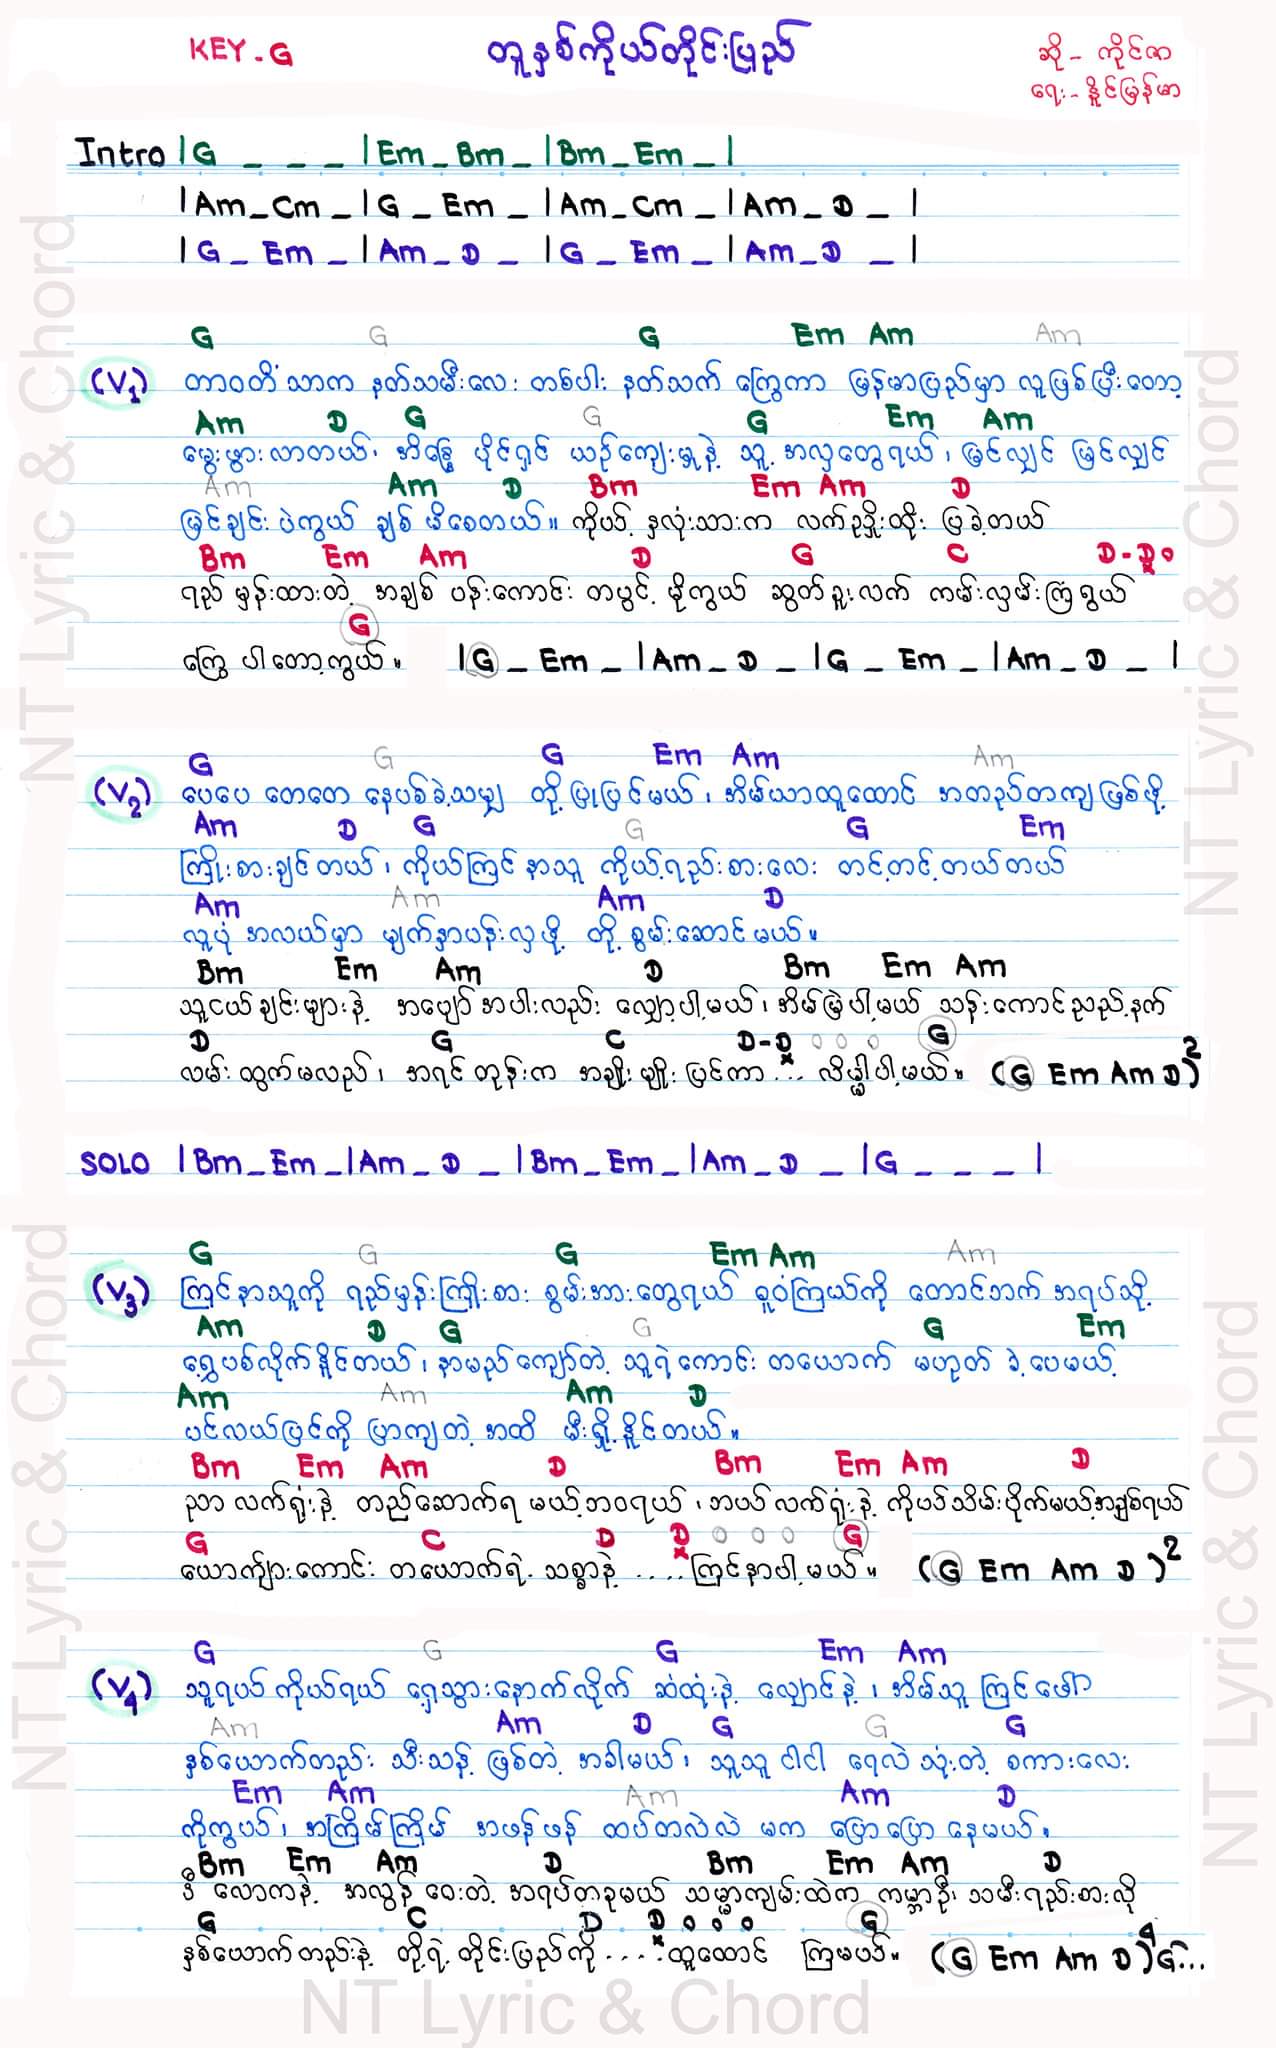 KEY-G
တူနှစ်ကိုယ်တိုင်းပြည်
ဆို - ကိုင်ဇာ
ရေး - နိူင်မြန်မာ
Intro |G _ _ _ |Em _ Bm _ |Bm _ Em _ |
|Am _ Cm _ |G _ Em _ |Am _ Cm _ |Am _ D _ |
|G _ Em _ |Am _ D _ |G _ Em _ |Am _ D _ |
G G G Em Am Am
(V1) တာဝတိံသာက နတ်သမီးလေး တစ်ပါး နတ်သက် ကြွေကာ မြန်မာပြည်မှာ လူဖြစ်ပြီးတော့
Am D G G G Em Am
မွေးဖွားလာတယ်၊ အိန္ဒြေ ပိုင်ရှင် ယဉ်ကျေးမှုနဲ့ သူ့ အလှတွေရယ်၊ မြင်လျှင် မြင်လျှင်
Am Am D Bm Em Am D
မြင်ချင်း ပဲကွယ် ချစ် မိစေတယ်။ ကိုယ့် နှလုံးသားက လက်ညှိုးထိုး ပြခဲ့တယ်
Bm Em Am D G C D-D
ရည် မှန်းထားတဲ့ အချစ် ပန်းကောင်း တပွင့် မို့ကွယ် ဆွတ်ခူးလက် ကမ်းလှမ်းကြံရွယ်
G
ကြွေ ပါတော့ကွယ်။ |G _ Em _ |Am _ D _ |G _ Em _ |Am _ D _ |
G G G Em Am Am
(V2) ပေပေ တေတေ နေပစ်ခဲ့သမျှ တို့ ပြုပြင်မယ်၊ အိမ်ယာထူထောင် အတည်တကျ ဖြစ်ဖို့
Am D G G G Em
ကြိုးစားချင်တယ်၊ ကိုယ်ကြင်နာသူ ကိုယ့်ရည်းစားလေး တင့်တင့်တယ်တယ်
Am Am Am D
လူပုံ အလယ်မှာ မျက်နှာပန်းလှဖို့ တို့ စွမ်းဆောင်မယ်။
Bm Em Am D Bm Em Am
သူငယ်ချင်းများနဲ့ အပျော် အပါးလည်း လျှော့ပါ့မယ်၊ အိမ်မြဲပါ့မယ် သန်းကောင်ညည့်နက်
D G C D-D G
လမ်းထွက်မလည်၊ အရင်တုန်းက အချိုးမျိုး ပြင်ကာ ... လိမ္မာပါ့မယ်။ (G Em Am D)2
SOLO |Bm _ Em _ |Am _ D _ |Bm _ Em _ |Am _ D _ |G _ _ _ |
G G G Em Am Am
(V3) ကြင်နာသူကို ရည်မှန်းကြိုးစား စွမ်းအားတွေရယ် စူဝံကြယ်ကို တောင်ဘက် အရပ်သို့
Am D G G G Em
ရွှေ့ပစ်လိုက်နိူင်တယ်၊ နာမည်ကျော်တဲ့ သူရဲကောင်း တယောက် မဟုတ် ခဲ့ပေမယ့်
Am Am Am D
ပင်လယ်ပြင်ကို ပြာကျတဲ့ အထိ မီးရှို့နိူင်တယ်။
Bm Em Am D Bm Em Am D
ညာ လက်ရုံးနဲ့ တည်ဆောက်ရ မယ့်ဘဝရယ်၊ ဘယ် လက်ရုံးနဲ့ ကိုယ်သိမ်းပိုက်မယ့်အချစ်ရယ်
G C D D G
ယောက်ျားကောင်း တယောက်ရဲ့ သစ္စာနဲ့ .... ကြင်နာပါ့မယ်။ (G Em Am D)2
G G G Em Am
(V4) သူရယ် ကိုယ်ရယ် ရှေ့သွားနောက်လိုက် ဆံထုံးနဲ့ လျှောင်နဲ့၊ အိမ်သူ ကြင်ဖော်
Am Am D G G G
နှစ်ယောက်တည်း သီးသန့် ဖြစ်တဲ့ အခါမယ်၊ သူသူ ငါငါ ရေလဲ သုံးတဲ့ စကားလေး
Em Am Am Am D
ကိုကွယ်၊ အကြိမ်ကြိမ် အဖန်ဖန် ထပ်တလဲလဲ မက ပြောပြော နေမယ်။
Bm Em Am D Bm Em Am D
ဒီ လောကနဲ့ အလွန် ဝေးတဲ့ အရပ်တခုမယ် သမ္မာကျမ်းထဲက ကမ္ဘာဦး သမီးရည်းစားလို
G C D D G
နှစ်ယောက်တည်းနဲ့ တို့ရဲ့ တိုင်းပြည်ကို .... ထူထောင် ကြမယ်။ (G Em Am D)4 G...
NT Lyric & Chord
NT Lyric & Chord
NT Lyric & Chord
NT Lyric & Chord
NT Lyric & Chord